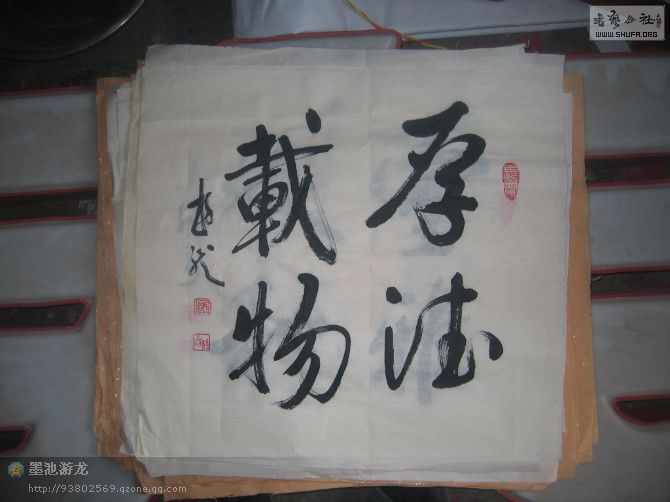 厚德
載物
游龙
書藝公社
WWW.SHUFA.ORG
墨池游龙
http://93802569.qzone.qq.com